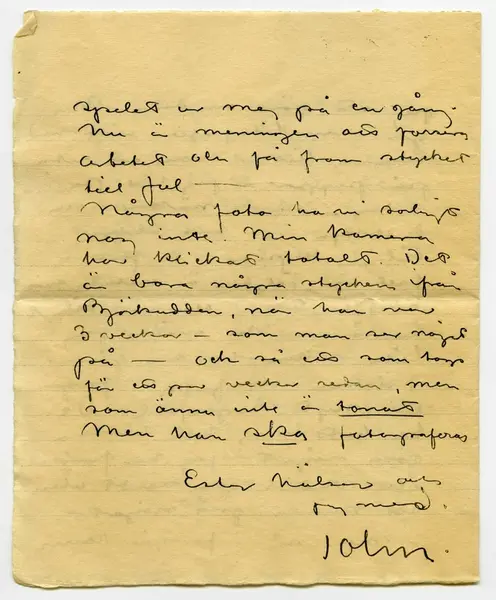 spelet ur mej på en gång.
Nu är meningen att forcera
arbetet och få fram stycket
till jul —
Några foto ha vi sorligt
nog inte. Min kamera
har klickat totalt. Det
är bara några stycken från
Björkudden, när han var
3 veckor – som man ser något
på — och så ett som togs
för ett par veckor sedan, men
som ännu inte är tonat
Men han ska fotograferas
Ester hälsar och
jag med.
John.